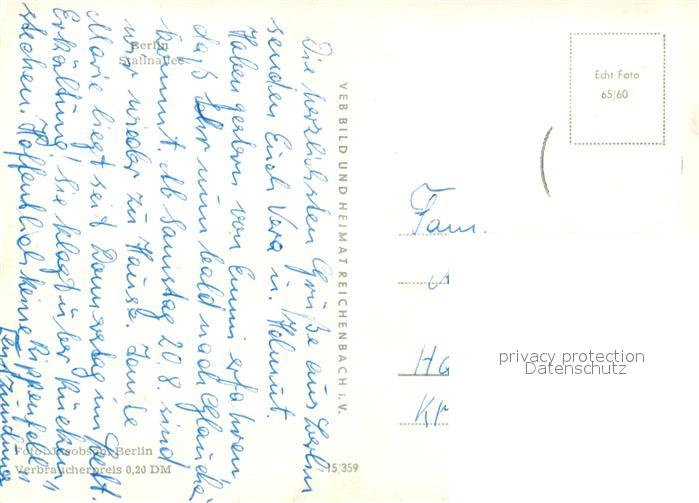 Berlin
Stalinallee
Die herzlichsten Grüße aus Berlin
senden Euch Vera u. Helmut.
Haben gestern von Emmi erfahren
daß Ihr nun bald nach
kommt. Ab Samstag 20.8 sind
wir wieder zu Hause. Tante
Marie liegt seit Donnerstag im Bett.
Erkältung! Sie klagt über Rücken-
stechen. Hoffentlich keine Rippenfell-
Entzündung
VEB BILD UND HEIMAT REICHENBACH i. V.
Echt Foto
65/60
Fam.
Ha
Kr
privacy protection
Datenschutz
Foto: Jacobson, Berlin
Verbraucherpreis 0,20 DM
15/359